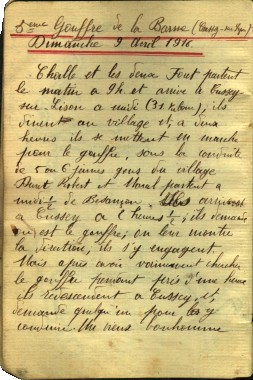 5eme Gouffre de la Baume (Cussey-sur-Lison)
Dimanche 9 Avril 1916.
Challe et les deux Fout partent
le matin à 9h et arrive à Cussey
sur-Lison à midi (31 kilom); ils
dinent au village et, à deux
heures ils se mettent en marche
pour le gouffre, sous la conduite
de 5 ou 6 jeunes gens du village
Robert et Morel partent à
midi ½ de Besançon. Ils arrivent
à Cussey à 2 heures ½; ils demande
où est le gouffre; on leur montre
la direction, ils s'y engagent.
Mais après avoir vainement cherché
le gouffre pendant près d'une heure
ils redescendent à Cussey et,
demande quelqu'un pour les y
conduire. Un vieux bonhomme